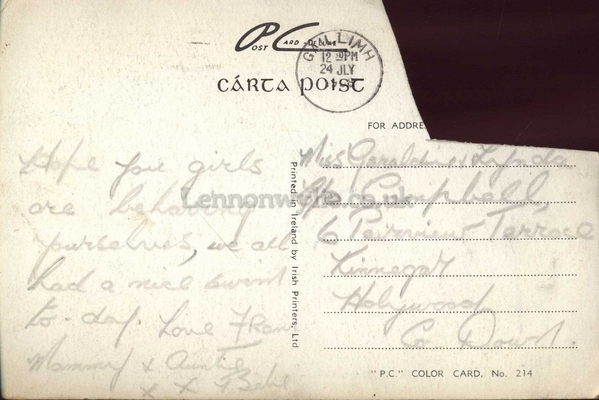 POST CARD - DE LUXE
GAILLIMH
12 PM
24 JLY
CÁRTA POIST
FOR ADDRE
Hope you girls
are behaving
yourselves, we all
had a nice swim
to-day. Love Fran
Mammy x Auntie
x x
Printed in Ireland by Irish Printers, Ltd
Miss Geraldine & Lynda
Campbell,
6 Pierview Terrace
Kinnegar
Holywood
Co Down.
Lennonwylie.co.uk
"P.C." COLOR CARD, No. 214